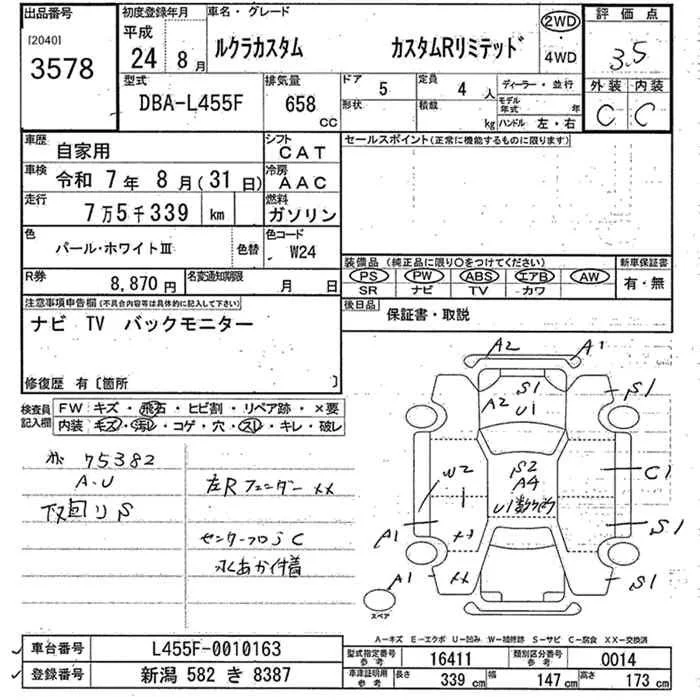 出品番号
[2040]
3578
初度登録年月
平成
24 8月
車名・グレード
ルクラカスタム カスタムRリミテッド
2WD
・
4WD
評価点
3.5
外装 内装
C C
型式
DBA-L455F
排気量
658
cc
ドア
5
定員
4 人
形状
積載
kg
ディーラー・並行
モデル年式 年
ハンドル 左・右
車歴
自家用
シフト
CAT
車検
令和 7年 8月(31日)
冷房
AAC
走行
7万5千339 km
燃料
ガソリン
色
パール・ホワイトⅢ
色替
色コード
W24
R券
8,870円
名変通知期限
月 日
セールスポイント(正常に機能するものに限ります)
装備品(純正品に限り○をつけてください)
PS PW ABS エアB AW
SR ナビ TV カワ
新車保証書
有・無
後日品
保証書・取説
注意事項申告欄(不具合内容等は具体的に記入して下さい)
ナビ TV バックモニター
修復歴 有〔箇所 〕
検査員
記入欄
FW キズ・飛石・ヒビ割・リペア跡・×要
内装 キズ・汚レ・コゲ・穴・スレ・キレ・破レ
75382
A.U
下回りS
左Rフェンダー XX
センターフロS C
水あか付着
A2 A1
S1
A2
U1
S1
W2
S2
A4
U1
C1
A1
S1
XX
A1
XX
S1
スペア
A-キズ E-エクボ U-凹み W-補修跡 S-サビ C-腐食 XX-交換済
車台番号
L455F-0010163
登録番号
新潟 582 き 8387
型式指定番号
参考
16411
類別区分番号
参考
0014
車庫証明用
参考
長さ
339 cm
幅
147 cm
高さ
173 cm